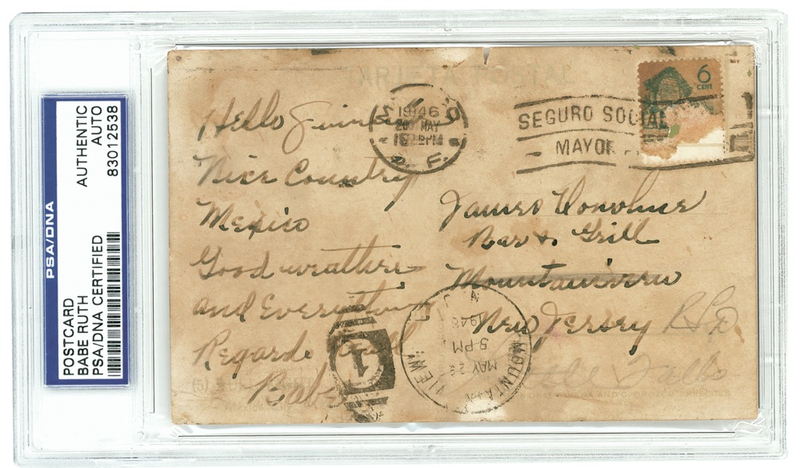 PSA/DNA
POSTCARD
BABE RUTH
PSA/DNA CERTIFIED
AUTHENTIC
AUTO
83012538
TARJETA POSTAL
Hello
Nice Country
Mexico
Good weather
and Everything
Regards
Babe
1946
MAY
D. F.
SEGURO SOCIAL
MAYOR
6
CENT
James Donohue
Bar & Grill
Mountainview
New Jersey
Falls
MOUNTAIN VIEW
N. J.
MAY 29
5 PM
1946
1